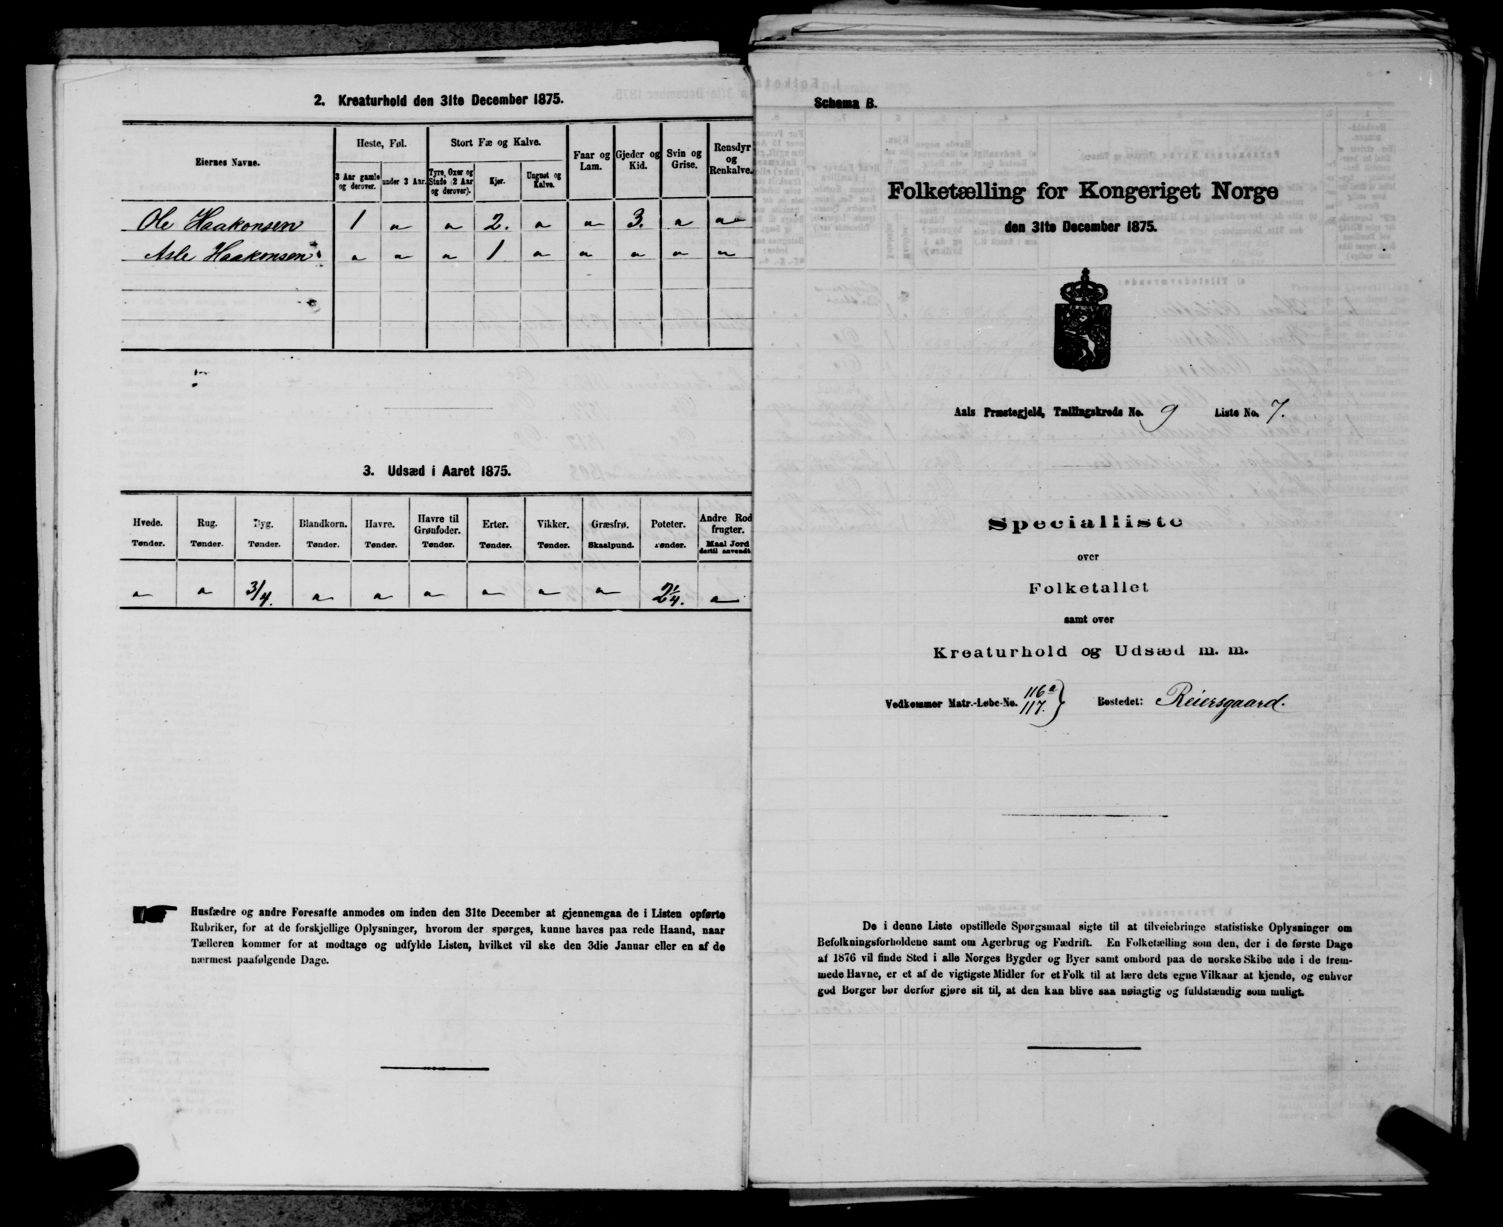 2. Kreaturhold den 31te December 1875.
Eiernes Navne.
Heste, Føl.
Stort Fæ og Kalve.
Faar og Lam.
Gjeder og Kid.
Svin og Grise.
Rensdyr og Renkalve.
3 Aar gamle og derover.
under 3 Aar.
Tyre, Oxer og Stude (2 Aar og derover).
Kjør.
Ungnøt og Kalve.
Ole Haakonsen 1 " " 2. " " 3. " "
Asle Haakonsen " " " 1 " " " " "
3. Udsæd i Aaret 1875.
Hvede. Rug. Byg. Blandkorn. Havre. Havre til Grønfoder. Erter. Vikker. Græsfrø. Poteter. Andre Rodfrugter.
Tønder. Tønder. Tønder. Tønder. Tønder. Tønder. Tønder. Tønder. Skaalpund. Tønder. Maal Jord dertil anvendt.
" " 3/4. " " " " " " 2 1/4. "
Husfædre og andre Foresatte anmodes om inden den 31te December at gjennemgaa de i Listen opførte
Rubriker, for at de forskjellige Oplysninger, hvorom der spørges, kunne haves paa rede Haand, naar
Tælleren kommer for at modtage og udfylde Listen, hvilket vil ske den 3die Januar eller en af de
nærmest paafølgende Dage.
Schema B.
Folketælling for Kongeriget Norge
den 31te December 1875.
Aals Præstegjeld, Tællingskreds No. 9 Liste No. 7.
Specialliste
over
Folketallet
samt over
Kreaturhold og Udsæd m. m.
Vedkommer Matr.-Løbe-No. 116a 117. } Bostedet: Reiersgaard.
De i denne Liste opstillede Spørgsmaal sigte til at tilveiebringe statistiske Oplysninger om
Befolkningsforholdene samt om Agerbrug og Fædrift. En Folketælling som den, der i de første Dage
af 1876 vil finde Sted i alle Norges Bygder og Byer samt ombord paa de norske Skibe ude i de frem-
mede Havne, er et af de vigtigste Midler for et Folk til at lære dets egne Vilkaar at kjende, og enhver
god Borger bør derfor gjøre sit til, at den kan blive saa nøiagtig og fuldstændig som muligt.